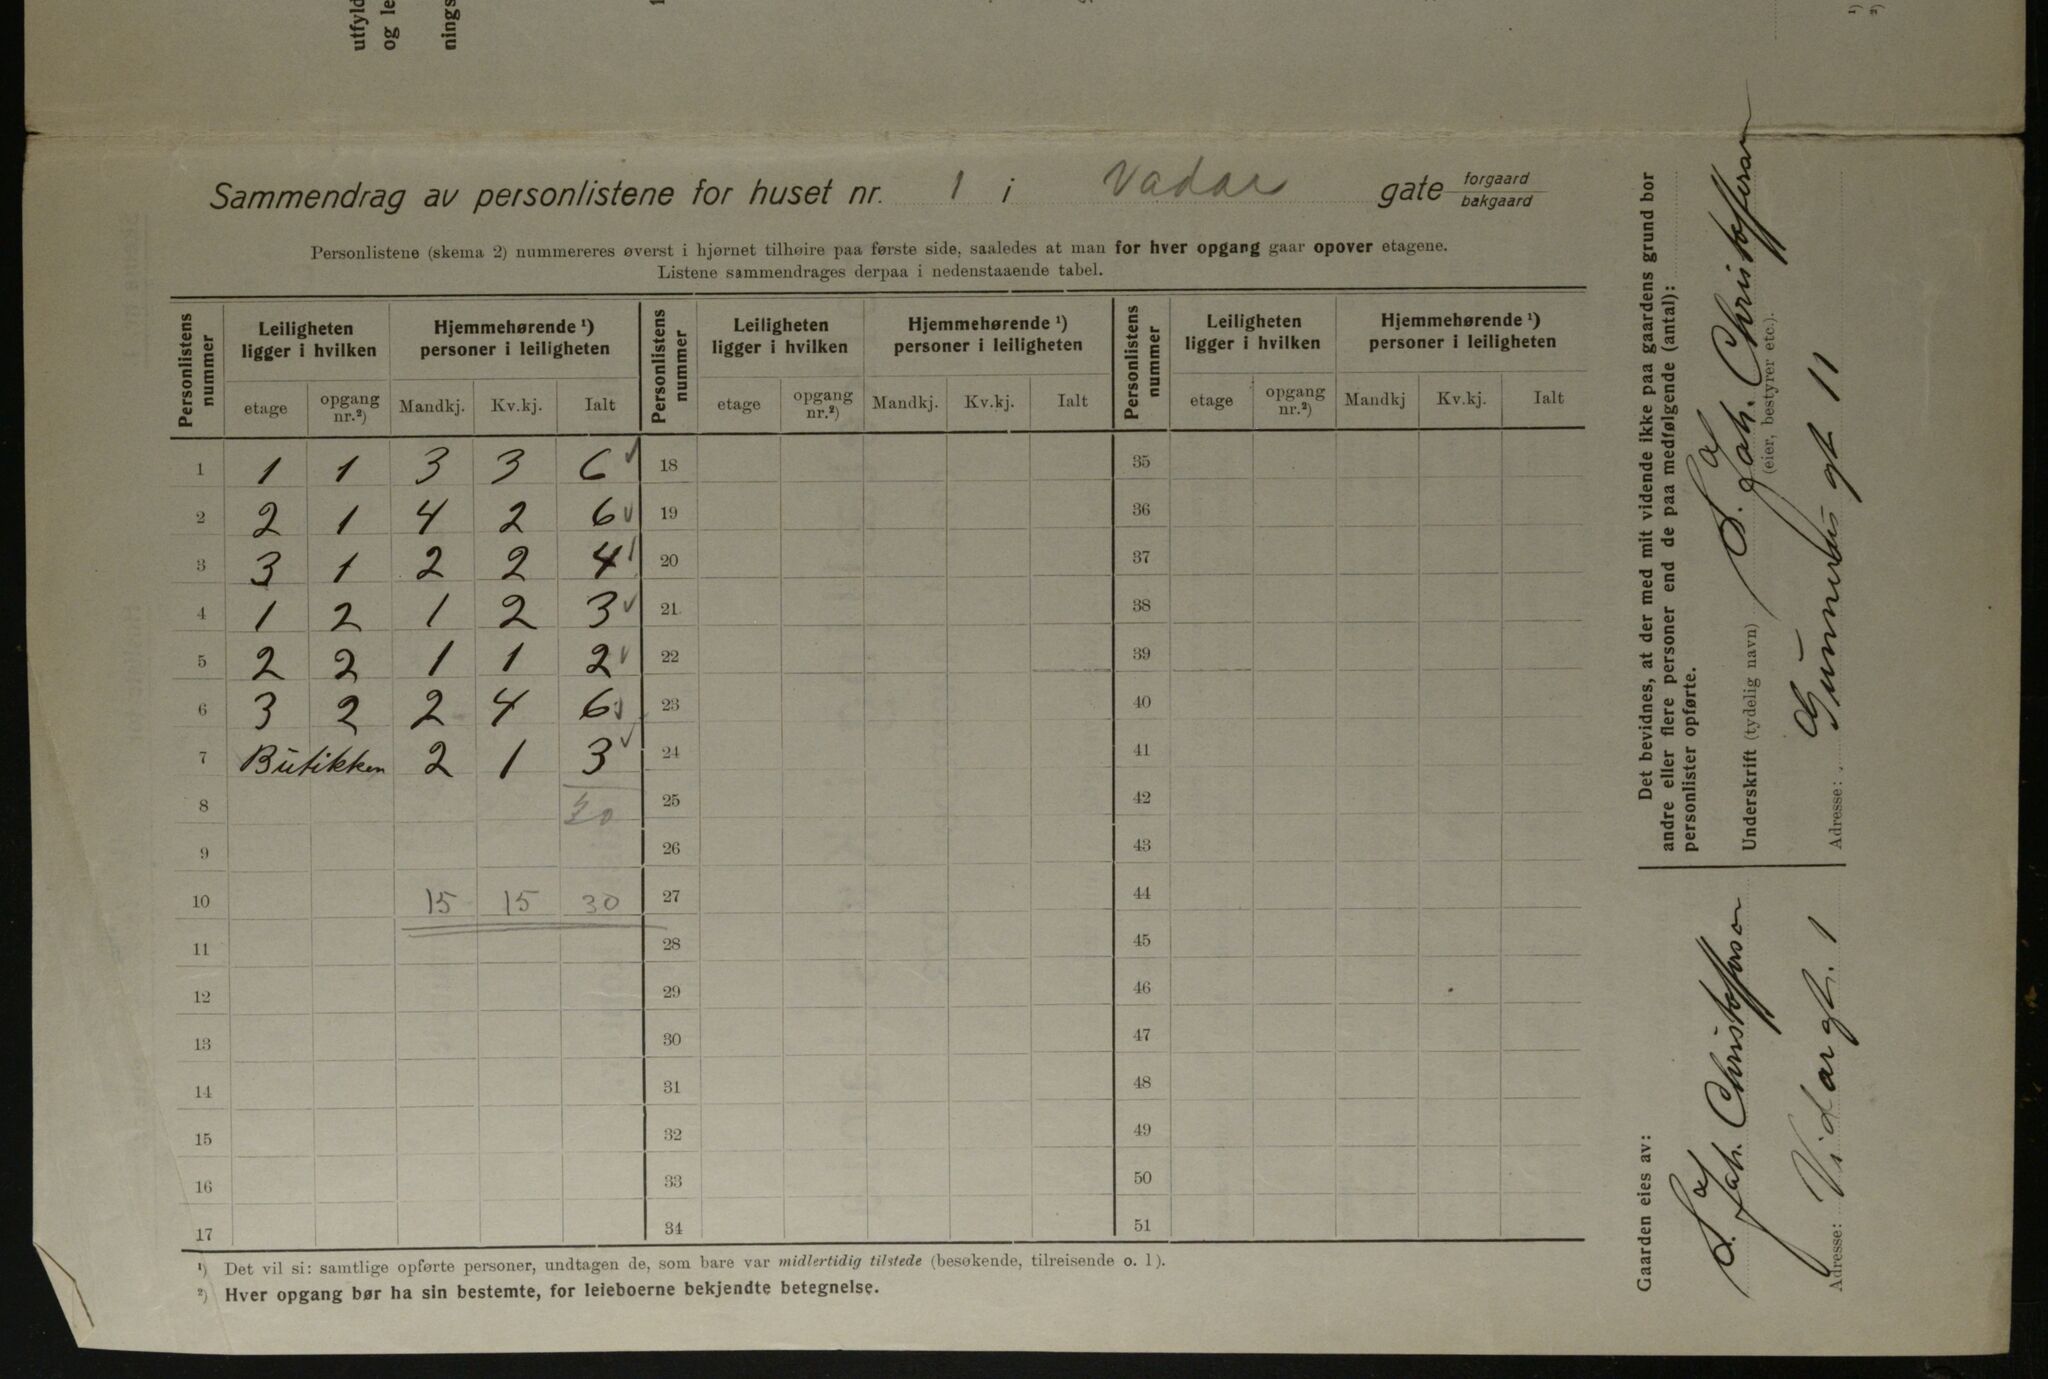 utfyld
og le
nings
Sammendrag av personlistene for huset nr. 1 i Vadar gate forgaard bakgaard
Personlistene (skema 2) nummereres øverst i hjørnet tilhøire paa første side, saaledes at man for hver opgang gaar opover etagene.
Listene sammendrages derpaa i nedenstaaende tabel.
Personlistens nummer Leiligheten ligger i hvilken Hjemmehørende ¹) personer i leiligheten Personlistens nummer Leiligheten ligger i hvilken Hjemmehørende ¹) personer i leiligheten Personlistens nummer Leiligheten ligger i hvilken Hjemmehørende ¹) personer i leiligheten
etage opgang nr.²) Mandkj. Kv.kj. Ialt etage opgang nr.²) Mandkj. Kv.kj. Ialt etage opgang nr.²) Mandkj Kv.kj. Ialt
1 1 1 3 3 6 18 35
2 2 1 4 2 6 19 36
3 3 1 2 2 4 20 37
4 1 2 1 2 3 21 38
5 2 2 1 1 2 22 39
6 3 2 2 4 6 23 40
7 Butikken 2 1 3 24 41
8 30 25 42
9 26 43
10 15 15 30 27 44
11 28 45
12 29 46
13 30 47
14 31 48
15 32 49
16 33 50
17 34 51
¹) Det vil si: samtlige opførte personer, undtagen de, som bare var midlertidig tilstede (besøkende, tilreisende o. l).
²) Hver opgang bør ha sin bestemte, for leieboerne bekjendte betegnelse.
Gaarden eies av:
Joh. Christofferson
Adresse: Vidar gt. 1
Det bevidnes, at der med mit vidende ikke paa gaardens grund bor
andre eller flere personer end de paa medfølgende (antal):
personlister opførte.
Underskrift (tydelig navn) Joh. Christofferson
(eier, bestyrer etc.).
Adresse: gt 11
¹)
²)